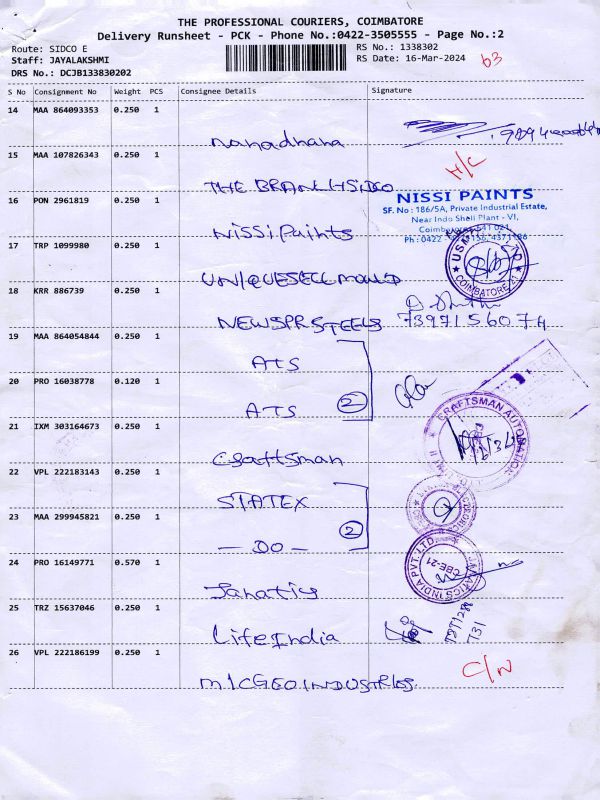 THE PROFESSIONAL COURIERS, COIMBATORE
Delivery Runsheet - PCK - Phone No.:0422-3505555 - Page No.:2
Route: SIDCO E
RS No.: 1338302
Staff: JAYALAKSHMI
RS Date: 16-Mar-2024
63
DRS No.: DCJB133830202
S No Consignment No Weight PCS Consignee Details Signature
14 MAA 864093353 0.250 1
nanadhana
15 MAA 107826343 0.250 1
H/C
THE BRANCH SIDCO
16 PON 2961819 0.250 1
NISSI PAINTS
SF. No : 186/5A, Private Industrial Estate,
Near Indo Shell Plant - VI,
Coimbatore - 641 021.
Nissi Paints
17 TRP 1099980 0.250 1
COIMBATORE-21
UNIQUESELL MOULD
18 KRR 886739 0.250 1
NEWSPR STEELS
73971 56074
19 MAA 864054844 0.250 1
ATS
20 PRO 16038778 0.120 1
ATS
2
21 IXM 303164673 0.250 1
CRAFTSMAN AUTOMATION
Craftsman
22 VPL 222183143 0.250 1
STATEX
23 MAA 299945821 0.250 1
2
- DO -
24 PRO 16149771 0.570 1
JANATICS INDIA PVT. LTD.
CBE-21
Janatics
25 TRZ 15637046 0.250 1
Life India
26 VPL 222186199 0.250 1
C/N
MICGEO INDUSTRIES